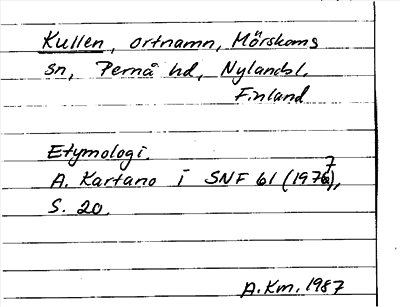 Kullen, ortnamn, Mörskoms
sn, Pernå hd, Nylandsl.
Finland
Etymologi.
A. Kartano i SNF 61 (1977),
S. 20.
A.Km. 1987